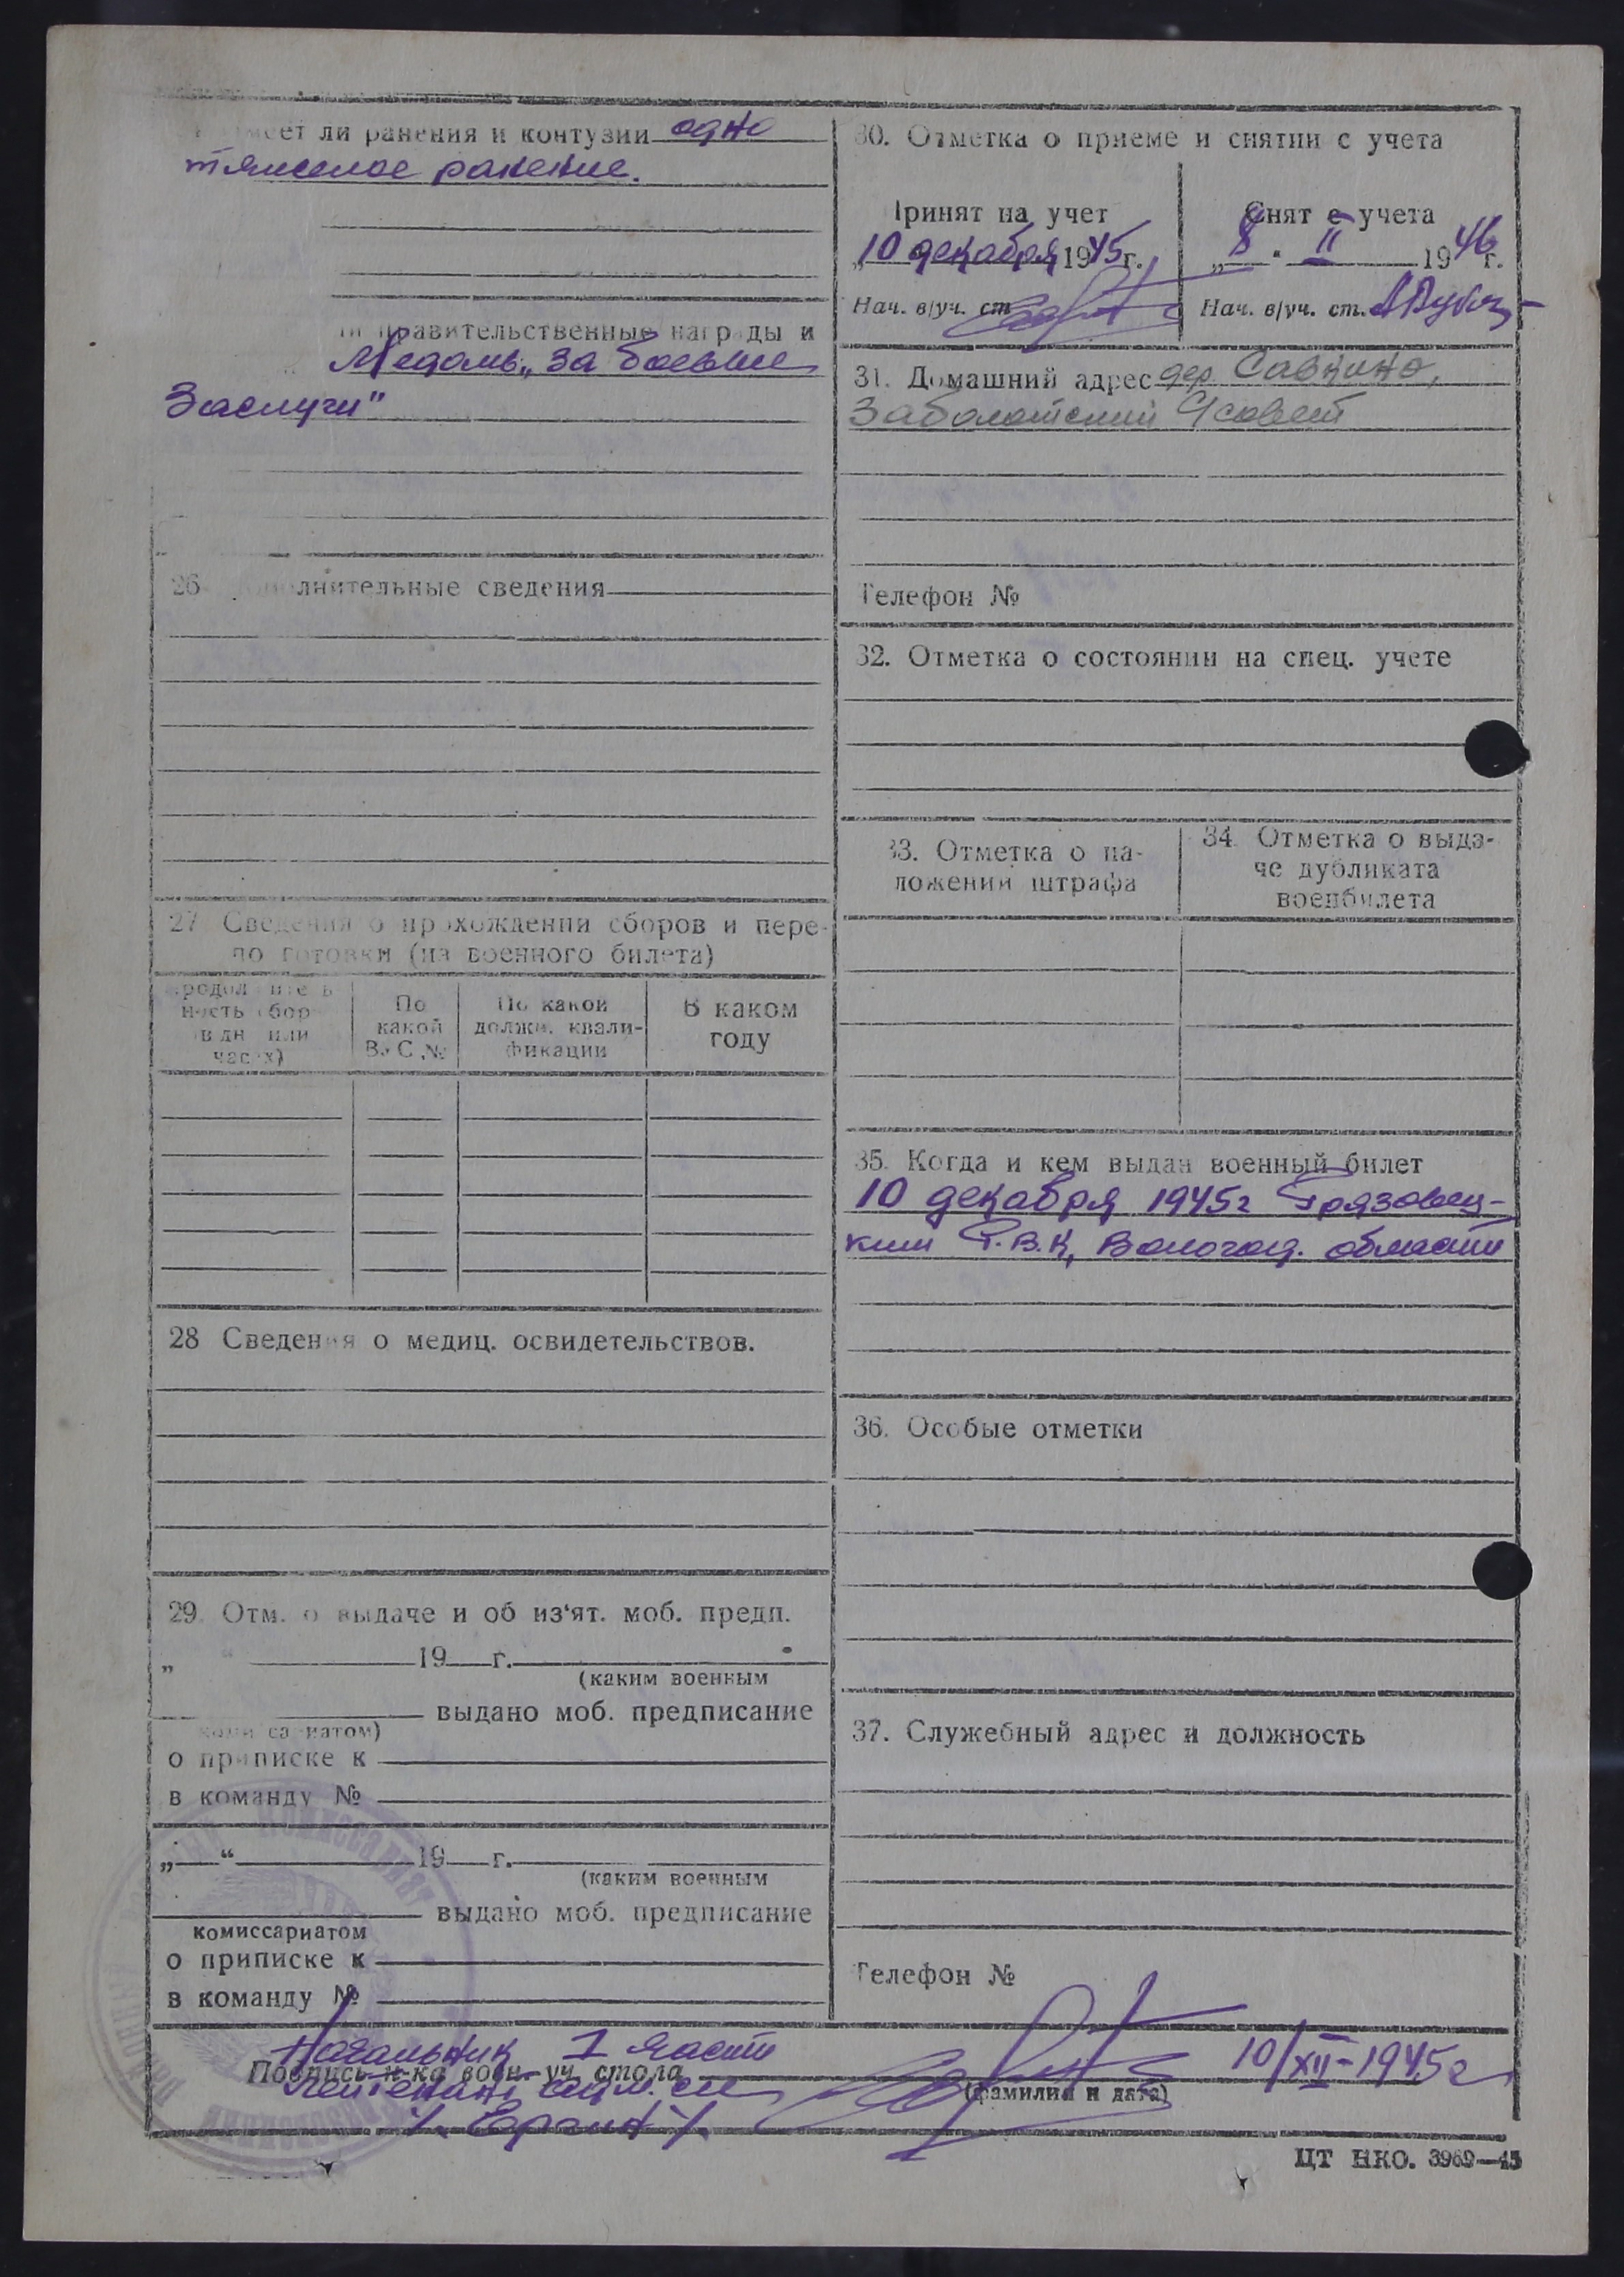 ли ранения и контузии одно
тяжелое ранение.
правительственные награды и
Медаль „За боевые
Заслуги"
26. лнительные сведения
27 Сведения о прохождении сборов и пере-
подготовки (из военного билета)
По какой В.У.С. №
По какой должн. квали-фикации
В каком году
28 Сведения о медиц. освидетельствов.
29. Отм. о выдаче и об из'ят. моб. предп.
„ “ 19 г.
(каким военным
выдано моб. предписание
комиссариатом)
о приписке к
в команду №
„ “ 19 г.
(каким военным
выдано моб. предписание
комиссариатом
о приписке к
в команду №
30. Отметка о приеме и снятии с учета
Принят на учет
„10 декабря 1945 г.
Нач. в/уч. ст.
Снят с учета
„8 “ II 1946 г.
Нач. в/уч. ст.
31. Домашний адрес дер. Савкино,
Заболотский с/совет
Телефон №
32. Отметка о состоянии на спец. учете
33. Отметка о на-
ложении штрафа
34. Отметка о выда-
че дубликата
военбилета
35. Когда и кем выдан военный билет
10 декабря 1945г Грязовец-
ким Р.В.К, Вологод. области
36. Особые отметки
37. Служебный адрес и должность
Телефон №
Начальник 1 части
Подпись н-ка воен-уч. стола
10/XII-1945г
(фамилия и дата)
лейтенант адм. сл
ЦТ НКО. 3969—45